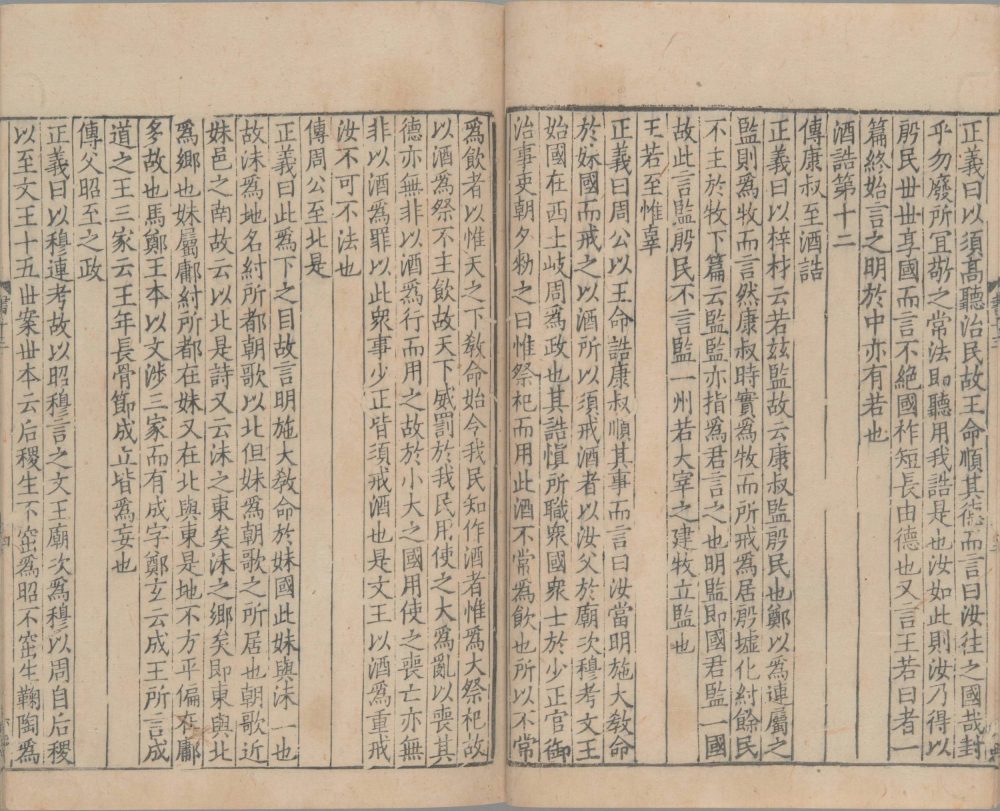 正義曰以須髙聽治民故王命順其德而言曰汝往之國哉封
乎勿廢所宜敬之常法即聽用我誥是也汝如此則汝乃得以
殷民丗丗享國而言不絕國祚短長由德也又言王若曰者一
篇終始言之明於中亦有若也
酒誥第十二
傳康叔至酒誥
正義曰以梓材云若兹監故云康叔監殷民也鄭以爲連屬之
監則爲牧而言然康叔時實爲牧而所戒爲居殷墟化紂餘民
不主於牧下篇云監監亦指爲君言之也明監即國君監一國
故此言監殷民不言監一州若大宰之建牧立監也
王若至惟辜
正義曰周公以王命誥康叔順其事而言曰汝當明施大敎命
於妹國而戒之以酒所以須戒酒者以汝父於廟次穆考文王
始國在西土岐周爲政也其誥慎所職衆國衆士於少正官御
治事吏朝夕勑之曰惟祭祀而用此酒不常爲飲也所以不常
爲飲者以惟天之下敎命始令我民知作酒者惟爲大祭祀故
以酒爲祭不主飲故天下威罰於我民用使之大爲亂以喪其
德亦無非以酒爲行而用之故於小大之國用使之喪亡亦無
非以酒爲罪以此衆事少正皆須戒酒也是文王以酒爲重戒
汝不可不法也
傳周公至北是
正義曰此爲下之目故言明施大敎命於妹國此妹與沬一也
故沬爲地名紂所都朝歌以北但妹爲朝歌之所居也朝歌近
妹邑之南故云以北是詩又云沬之東矣沬之鄉矣即東與北
爲鄉也妹屬鄘紂所都在妹又在北與東是地不方平偏在鄘
多故也馬鄭王本以文涉三家而有成字鄭玄云成王所言成
道之王三家云王年長骨節成立皆爲妄也
傳父昭至之政
正義曰以穆連考故以昭穆言之文王廟次爲穆以周自后稷
以至文王十五丗案丗本云后稷生不窋爲昭不窋生鞠陶爲